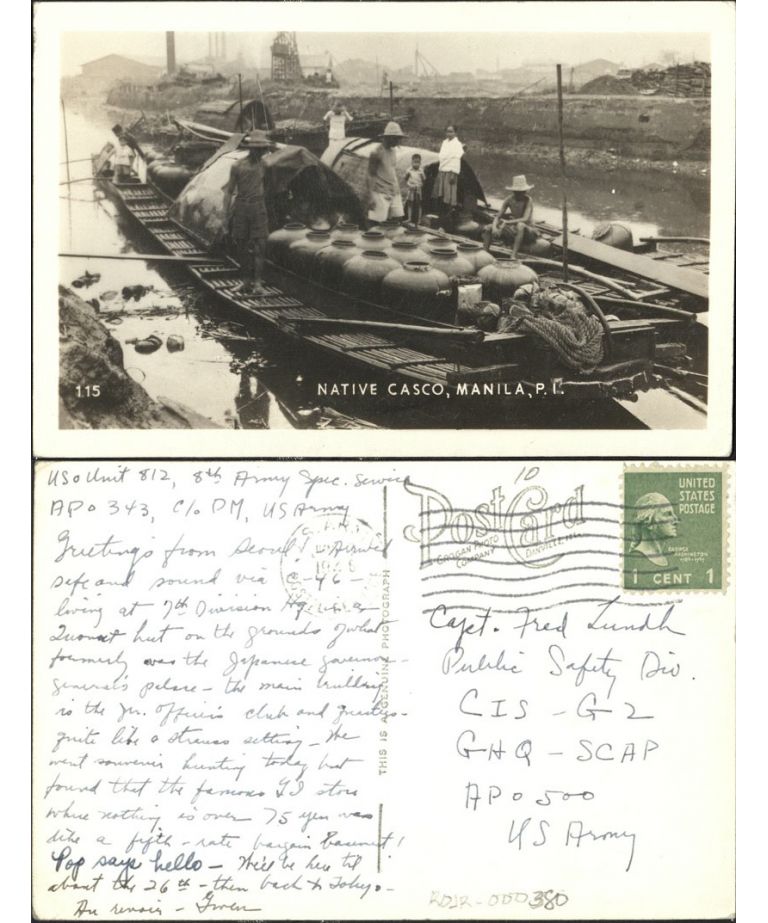 115
NATIVE CASCO, MANILA, P.I.
USO Unit 812, 8th Army Spec. Service
APO 343, C/o PM, US Army
Greetings from Seoul! Arrived
safe and sound via C-46 –
living at 7th Division Hq in a
Quonset hut on the grounds of what
formerly was the Japanese governor-
general's palace – the main building
is the Jr. officers club and quarters –
quite like a Strauss setting – We
went souvenir hunting today but
found that the famous GI store
where nothing is over 75 yen was
like a fifth-rate bargain basement!
Pop says hello – We'll be here til
about the 26th – then back to Tokyo –
Au revoir – Gwen
THIS IS A GENUINE PHOTOGRAPH
10
Post Card
GROGAN PHOTO
COMPANY
DANVILLE, ILL.
UNITED
STATES
POSTAGE
GEORGE
WASHINGTON
1789-1797
1 CENT 1
Capt. Fred Lundh
Public Safety Div.
CIS – G2
GHQ – SCAP
APO 500
US Army
RDJR-000380